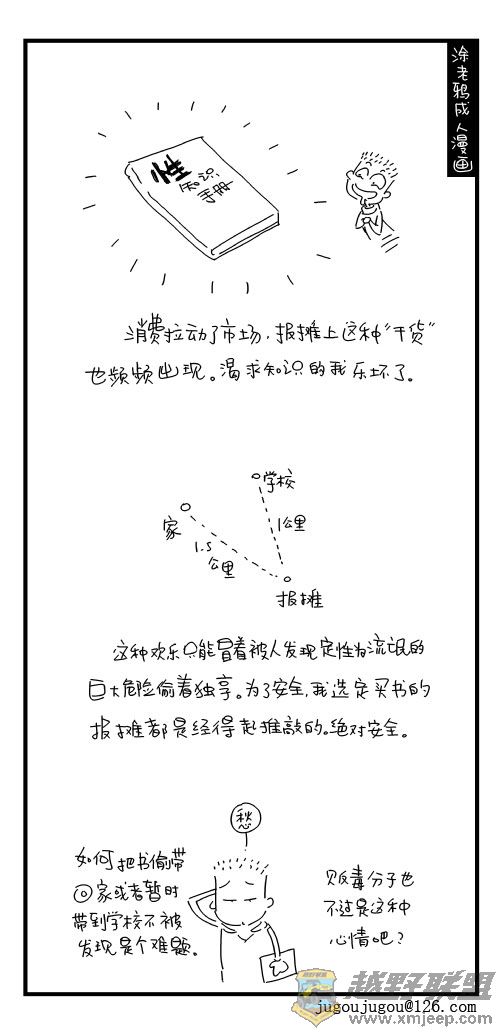 涂老鸦成人漫画
性
知识
手册
消费拉动了市场，报摊上这种“干货”
也频频出现。渴求知识的我乐坏了。
学校
家
1公里
1.5
公里
报摊
这种欢乐只能冒着被人发现定性为流氓的
巨大危险偷着独享。为了安全，我选定买书的
报摊都是经得起推敲的。绝对安全。
愁
如何把书偷带
回家或者暂时
带到学校不被
发现是个难题。
贩毒分子也
不过是这种
心情吧？
越野联盟
jugoujugou@126.com
www.xmjeep.com